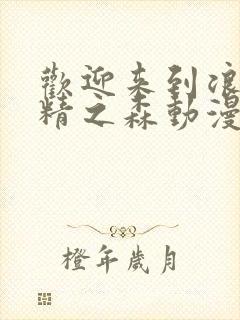 歡迎来到浪
精之森動漫
橙年歲月